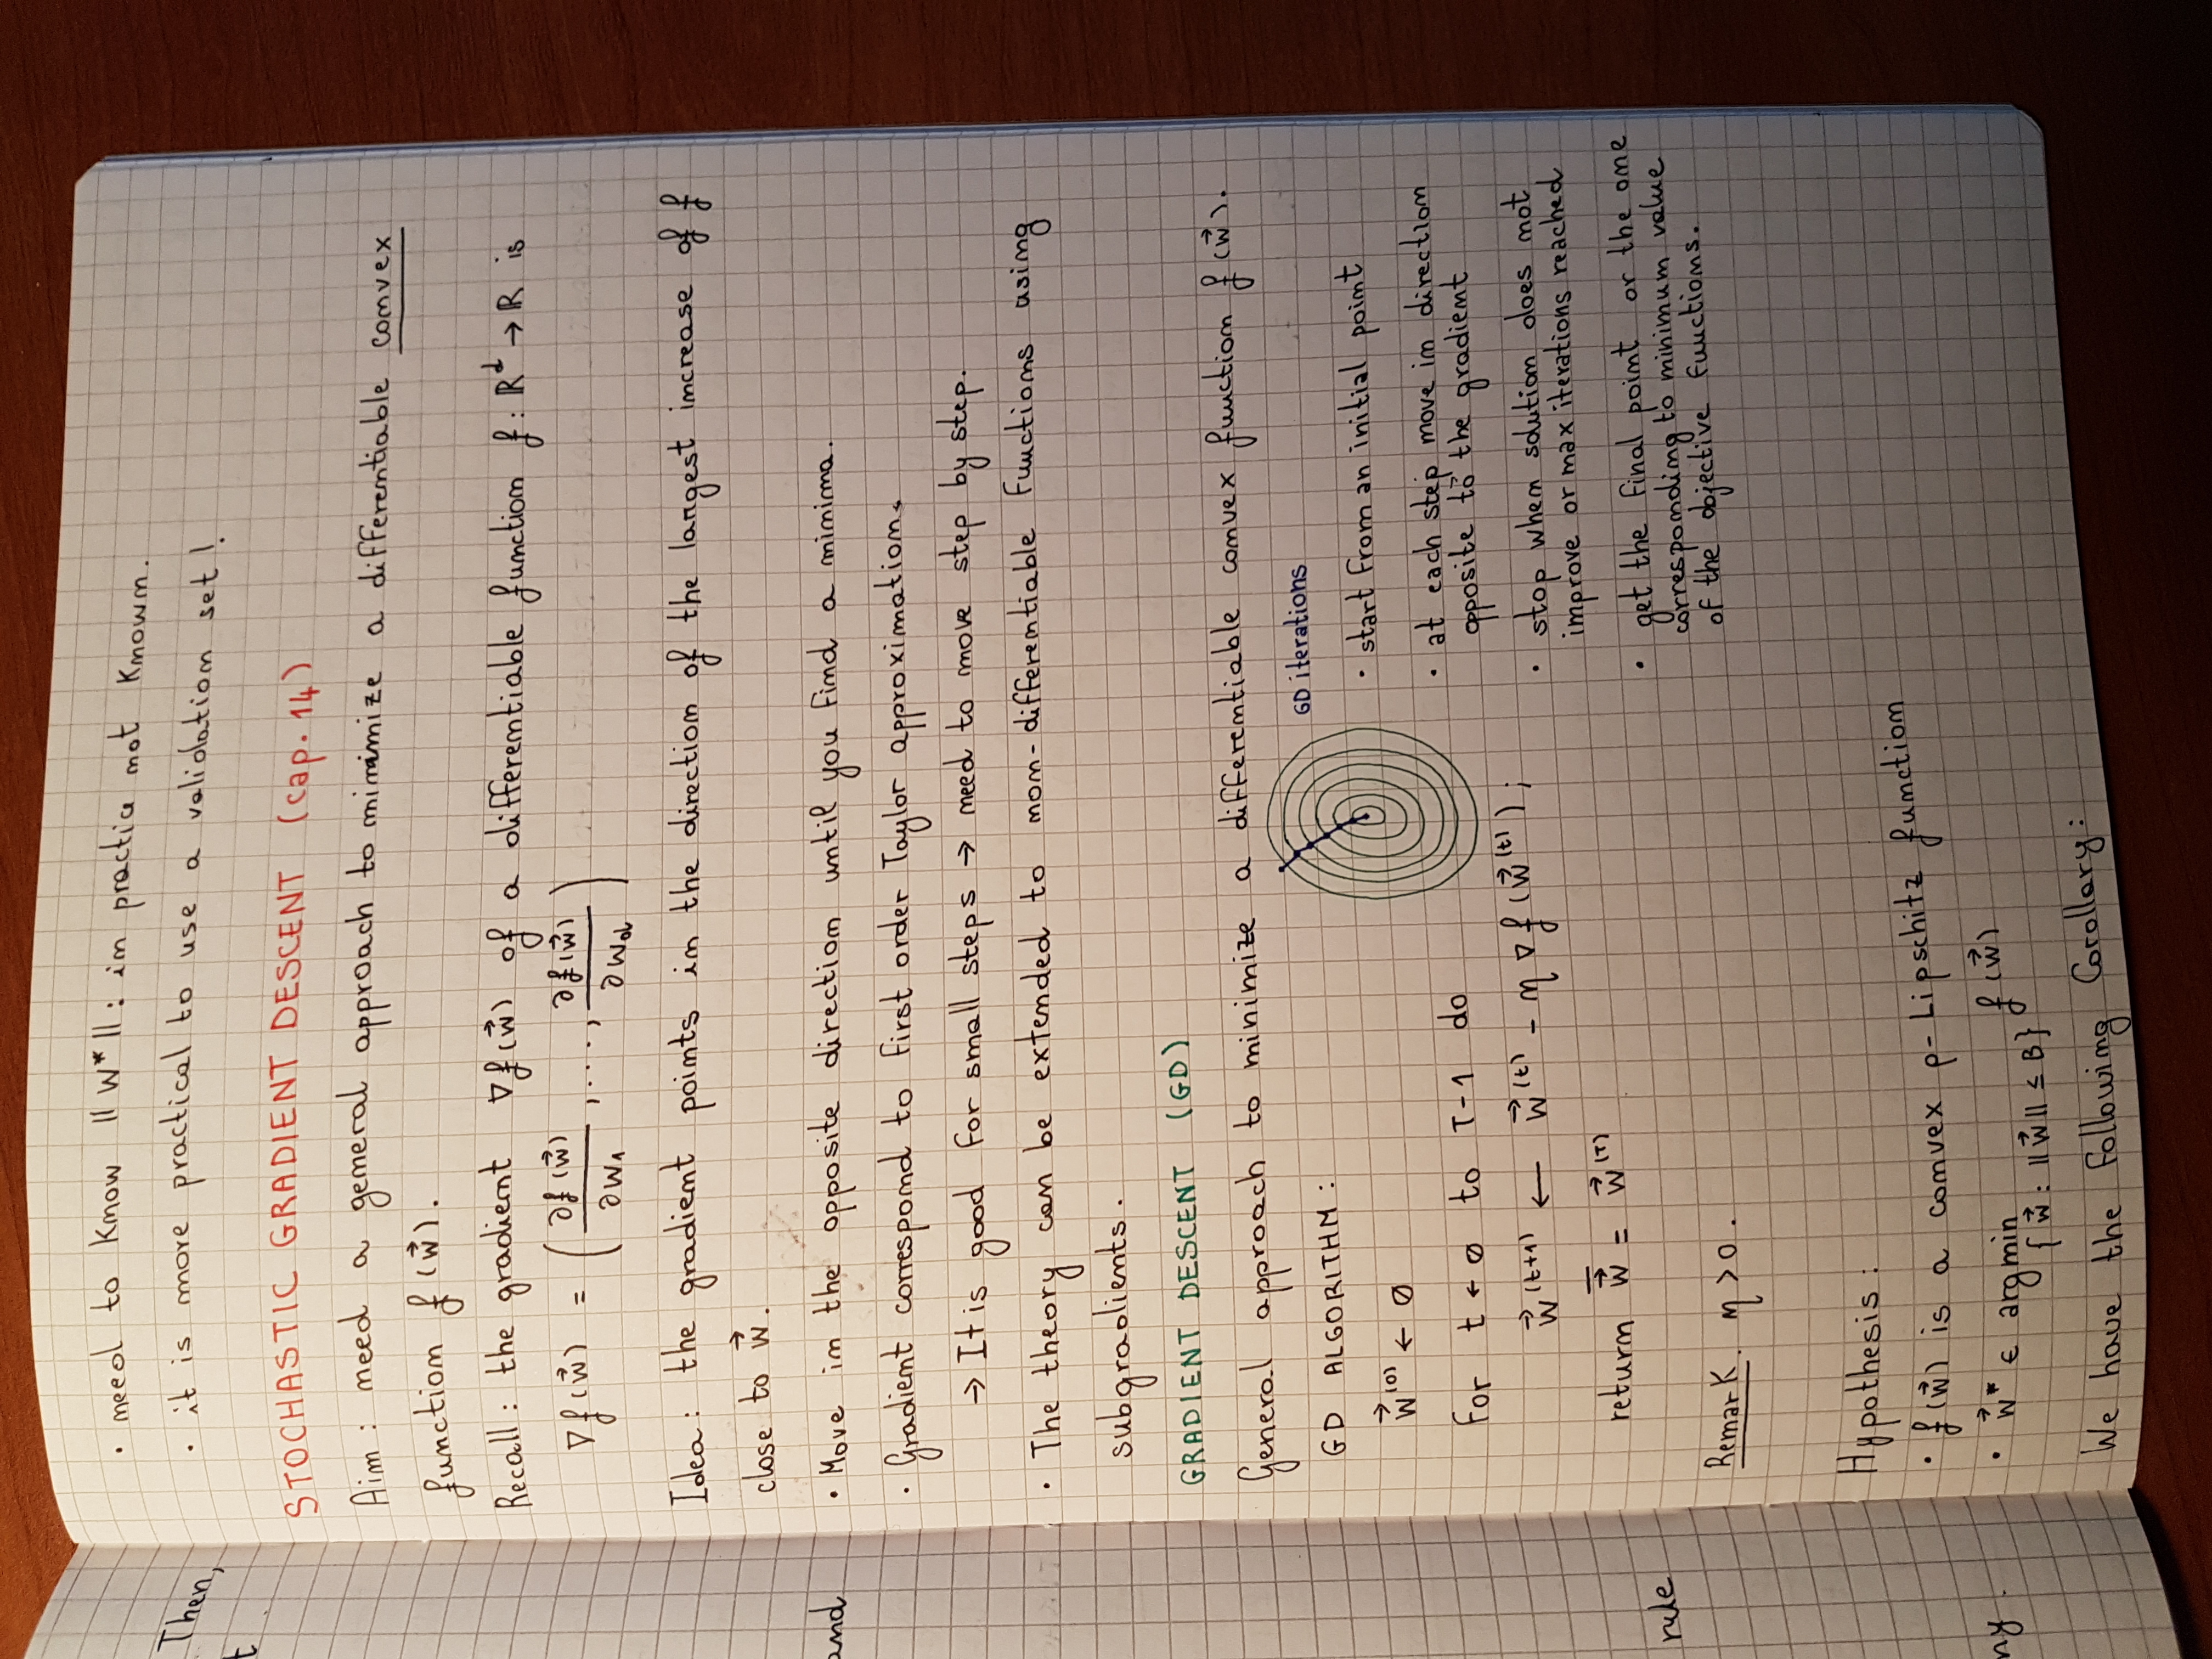 • need to know ‖w*‖: in practice not known.
• it is more practical to use a validation set!
STOCHASTIC GRADIENT DESCENT (cap. 14)
Aim: need a general approach to minimize a differentiable convex
function f(w⃗).
Recall: the gradient ∇f(w⃗) of a differentiable function f: ℝᵈ → ℝ is
∇f(w⃗) = (∂f(w⃗)/∂w₁, ..., ∂f(w⃗)/∂w_d)
Idea: the gradient points in the direction of the largest increase of f
close to w⃗.
• Move in the opposite direction until you find a minima.
• Gradient correspond to first order Taylor approximation.
→ It is good for small steps → need to move step by step.
• The theory can be extended to non-differentiable functions using
subgradients.
GRADIENT DESCENT (GD)
General approach to minimize a differentiable convex function f(w⃗).
GD ALGORITHM:
w⃗⁽⁰⁾ ← 0
for t ← 0 to T-1 do
w⃗⁽ᵗ⁺¹⁾ ← w⃗⁽ᵗ⁾ - η∇f(w⃗⁽ᵗ⁾);
return w̄⃗ = w⃗⁽ᵀ⁾
Remark. η > 0.
GD iterations
• start from an initial point
• at each step move in direction
opposite to the gradient
• stop when solution does not
improve or max iterations reached
• get the final point or the one
corresponding to minimum value
of the objective functions.
Hypothesis:
• f(w⃗) is a convex ρ-Lipschitz function
• w⃗* ∈ argmin f(w⃗)
{w⃗: ‖w⃗‖ ≤ B}
We have the following Corollary:
Then,
t
and
rule
ny.